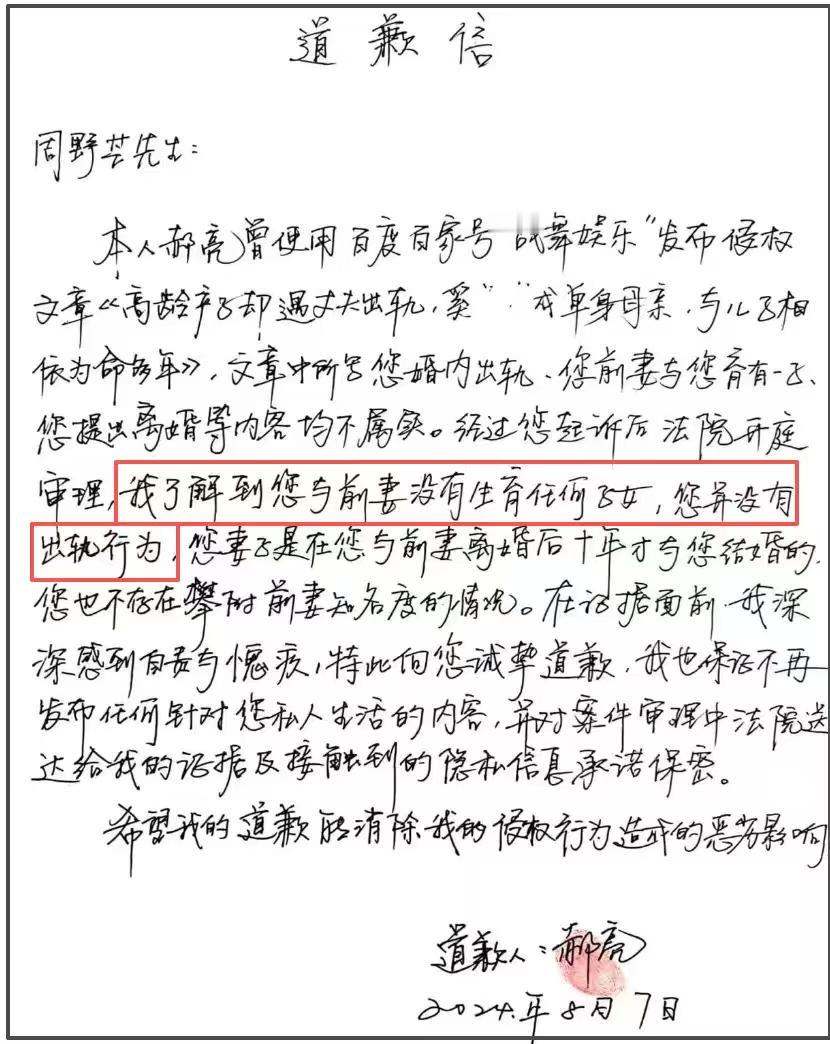 道歉信
周野芒先生：
本人郝亮曾使用百度百家号"战舞娱乐"发布侵权
文章《高龄产子却遇丈夫出轨，奚""成单身母亲，与儿子相
依为命多年》，文章中所写您婚内出轨、您前妻与您育有一子、
您提出离婚等内容均不属实。经过您起诉后法院开庭
审理，我了解到您与前妻没有生育任何子女，您并没有
出轨行为，您妻子是在您与前妻离婚后十年才与您结婚的，
您也不存在攀附前妻知名度的情况。在证据面前，我深
深感到自责与愧疚，特此向您诚挚道歉，我也保证不再
发布任何针对您私人生活的内容，并对案件审理中法院送
达给我的证据及接触到的隐私信息承诺保密。
希望我的道歉能消除我的侵权行为造成的恶劣影响
道歉人：郝亮
2024.年8月7日